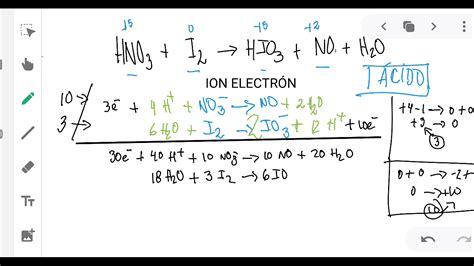 +5 0 +5 +2
HNO₃ + I₂ → HIO₃ + NO + H₂O
ION ELECTRÓN
ÁCIDO
10 3e⁻ + 4H⁺ + NO₃⁻ → NO + 2H₂O
3 6H₂O + I₂ → 2IO₃⁻ + 12H⁺ + 10e⁻
30e⁻ + 40H⁺ + 10NO₃⁻ → 10NO + 20H₂O
18H₂O + 3I₂ → 6IO
+4-1 → 0+0
+3 → 0
3
0+0 → -2+
0 → +10
10
Tт